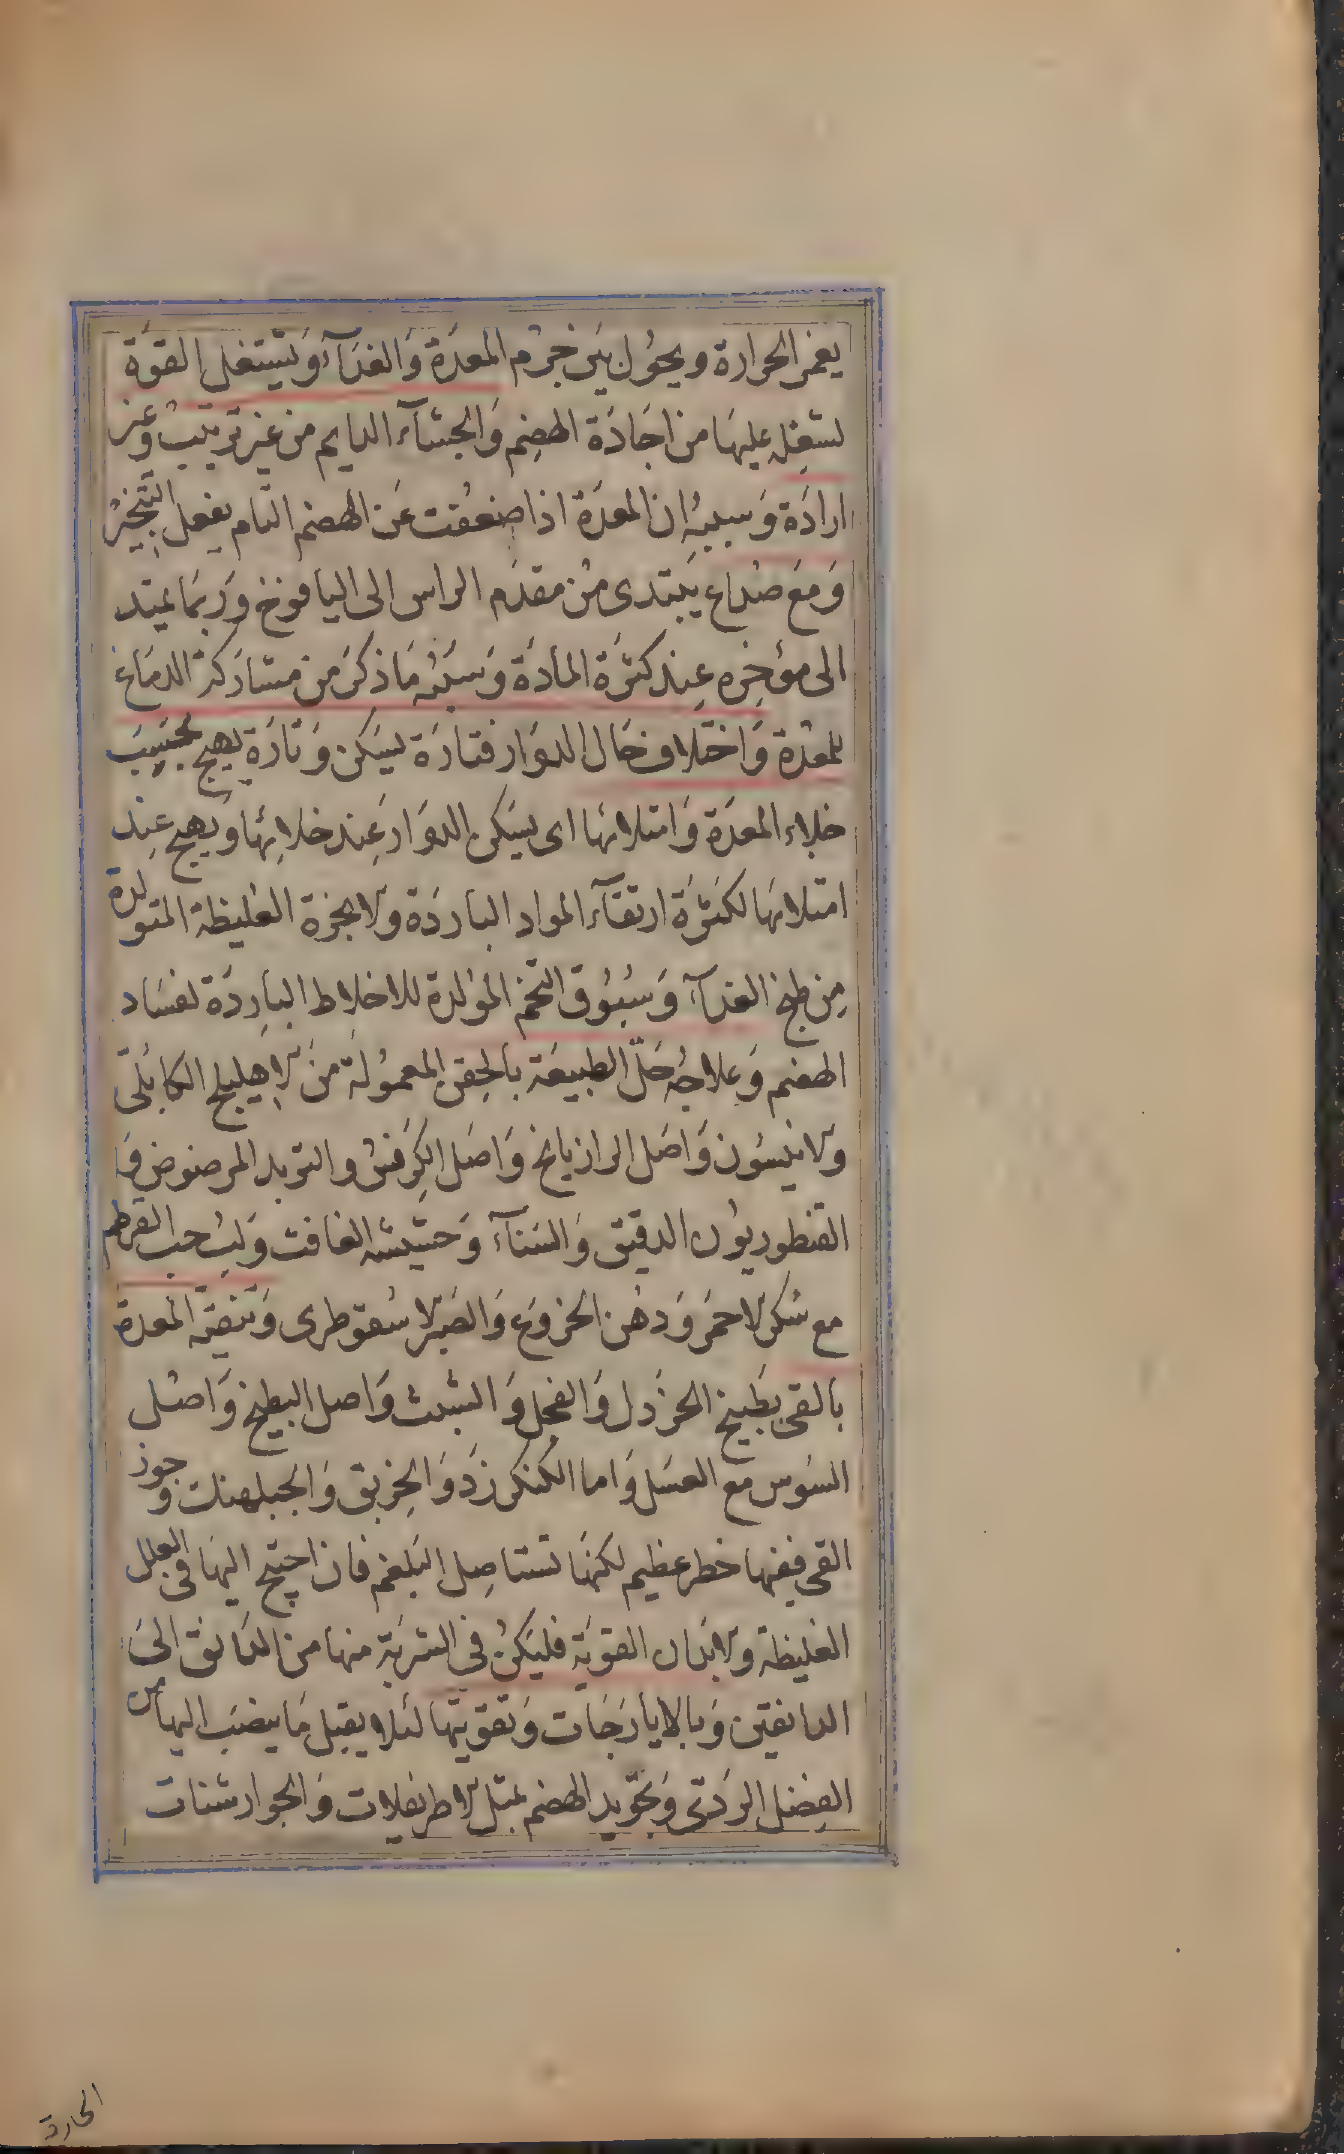 يغمر الحرارة ويحول بين جرم المعدة والغدآء ويشتغل القوة
لشغله عليها من اجادة الهضم والجشآء الدايم من غير ترتيب وغير
ارادة وسببه ان المعدة اذا ضعفت عن الهضم التام يفعل التبخير
ومع صداع يبتدى من مقدم الراس الى اليافوخ وربما يمتد
الى مؤخره عند كثرة المادة وسببه ما ذكر من مشاركة الدماغ
للمعدة واختلاف حال الدوار فتارة يسكن وتارة يهيج بحسب
خلاء المعدة وامتلائها اى يسكن الدوار عند خلائها ويهيج عند
امتلائها لكثرة ارتقآء المواد الباردة والابخرة الغليظة المتولدة
من طبخ الغدآء وسبوق التخم المولدة للاخلاط الباردة لفساد
الهضم وعلاجه حل الطبيعة بالحقن المعمولة من الاهليلج الكابلى
والانيسون واصل الرازيانج واصل الكرفس والتربد المرضوض و
القنطوريون الدقيق والسنآء وحشيشه الغافت ولب حب القرطم
مع سكر الاحمر ودهن الخروع والصبر الاسقوطرى وتنقية المعدة
بالقى بطبيخ الخردل والفجل والشبث واصل البطيخ واصل
السوس مع العسل واما الكنكرزد والخربق والجبلهنك وجوز
القى ففيها خطر عظيم لكنها تستاصل البلغم فان احتيج اليها فى العلل
الغليظة والابدان القوية فليكن فى الشربة منها من الدانق الى
الدانقين وبالايارجات وتقويتها لئلا يقبل ما ينصب اليها من
الفضل الردئ وتجويد الهضم بمثل الاطريفلات والجوارشنات
الحارة